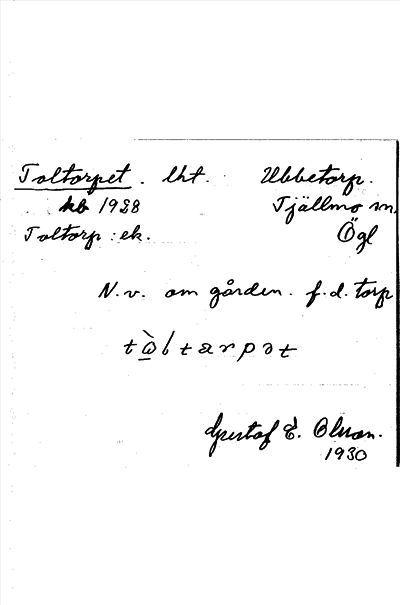 Toltorpet. lht. Ubbetorp.
kb 1928 Tjällmo sn.
Toltorp : ek. Ögl
N. v. om gården. f. d. torp
Gustaf E. Olsson.
1930